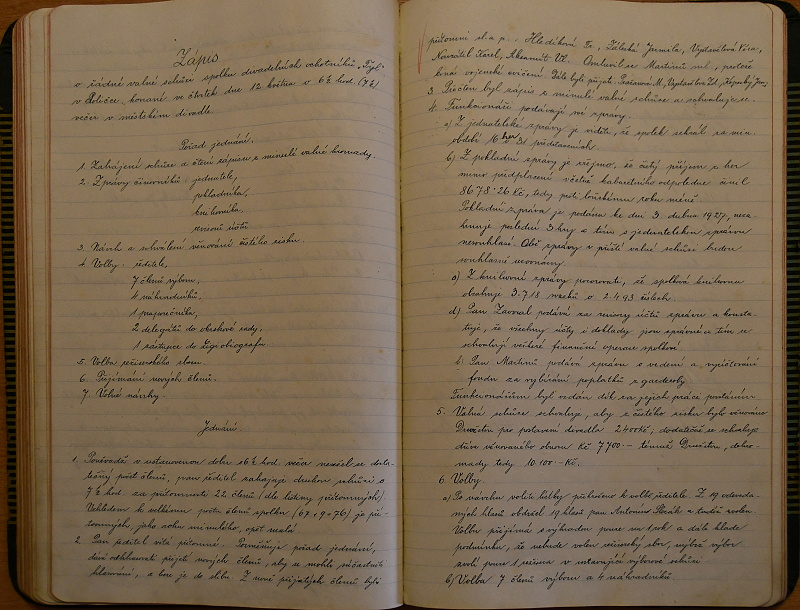 Zápis
o řádné valné schůzi spolku divadelních ochotníků „Tyl"
v Poličce, konané ve čtvrtek dne 12. května o 6½ hod. (7½)
večer v městském divadle.
Pořad jednání:
1. Zahájení schůze a čtení zápisu z minulé valné hromady.
2. Zprávy činovníků: jednatele,
pokladníka,
knihovníka,
revisorů účtů
3. Návrh a schválení věnování čistého zisku.
4. Volby: ředitele,
7 členů výboru,
4 náhradníků,
1 praporečníka,
2 delegátů do okrskové rady,
1 zástupce do Legiobiografu
5. Volba režisérského sboru.
6. Přijímání nových členů.
7. Volné návrhy.
Jednání
1. Poněvadž v ustanovenou dobu o 6½ hod. večer nesešel se dosta-
tečný počet členů, pan ředitel zahajuje druhou schůzi o
7½ hod. za přítomnosti 22 členů (dle listiny přítomných).
Vzhledem k celkovému počtu členů spolku (67+9=76) je pří-
tomných, jako roku minulého, opět málo.
2. Pan ředitel vítá přítomné. Pozměňuje pořad jednání,
dává odhlasovati přijetí nových členů, aby se mohli súčastniti
hlasování, a bere je do slibu. Z nově přijatých členů byli
přítomni sl. a p.: Hledíková Fr., Záleská Jarmila, Vystavělová Věra,
Navrátil Karel, Omluvil se Martinů ml., protože
koná vojenské cvičení. Dále byli přijati: M., Vystavělová Zd., Kopecký
3. Přečten byl zápis z minulé valné schůze a schvaluje se.
4. Funkcionáři podávají své zprávy.
a) Z jednatelské zprávy je viděti, že spolek sehrál za min.
období 16 her v 31 představeních.
b) Z pokladní zprávy je zřejmo, že čistý příjem z her
mimo předplacení včetně kabaretního odpoledne činil
8678·26 Kč, tedy proti loňskému roku méně.
Pokladní zpráva je podána ke dni 3. dubna 1927, neza-
hrnuje poslední 3 hry a tím s jednatelskou zprávou
nesouhlasí. Obě zprávy v příští valné schůzi budou
souhlasně srovnány.
c) Z knihovní zprávy pozorovati, že spolková knihovna
obsahuje 3.718 svazků o 2.493 číslech.
d) Pan Zavoral podává za revisory účtů zprávu a konsta-
tuje, že všechny účty i doklady jsou správné a tím se
schvalují veškeré finanční operace spolkové.
Pan Martinů podává zprávu o vedení a vyúčtování
fondu za vybírání poplatků z garderoby.
Funkcionářům byl vzdán dík za jejich práci povstáním.
5. Valná schůze schvaluje, aby z čistého zisku bylo věnováno
Družstvu pro postavení divadla 2400 Kč; dodatečně se schvaluje
dříve věnovaného obnosu Kč 7700·– témuž Družstvu, dohro-
mady tedy 10.100·– Kč.
6. Volby.
a) Po návrhu volební lístky přikročeno k volbě ředitele. Z 19 odevzda-
ných hlasů obdržel 19 hlasů pan Antonín a tudíž zvolen.
Volbu přijímá s výhradou pouze na 1 rok a dále klade
podmínku, že nebude volen režisérský sbor, nýbrž výbor
zvolí pouze 1 režiséra v ustavující výborové schůzi.
b) Volba 7 členů výboru a 4 náhradníků.